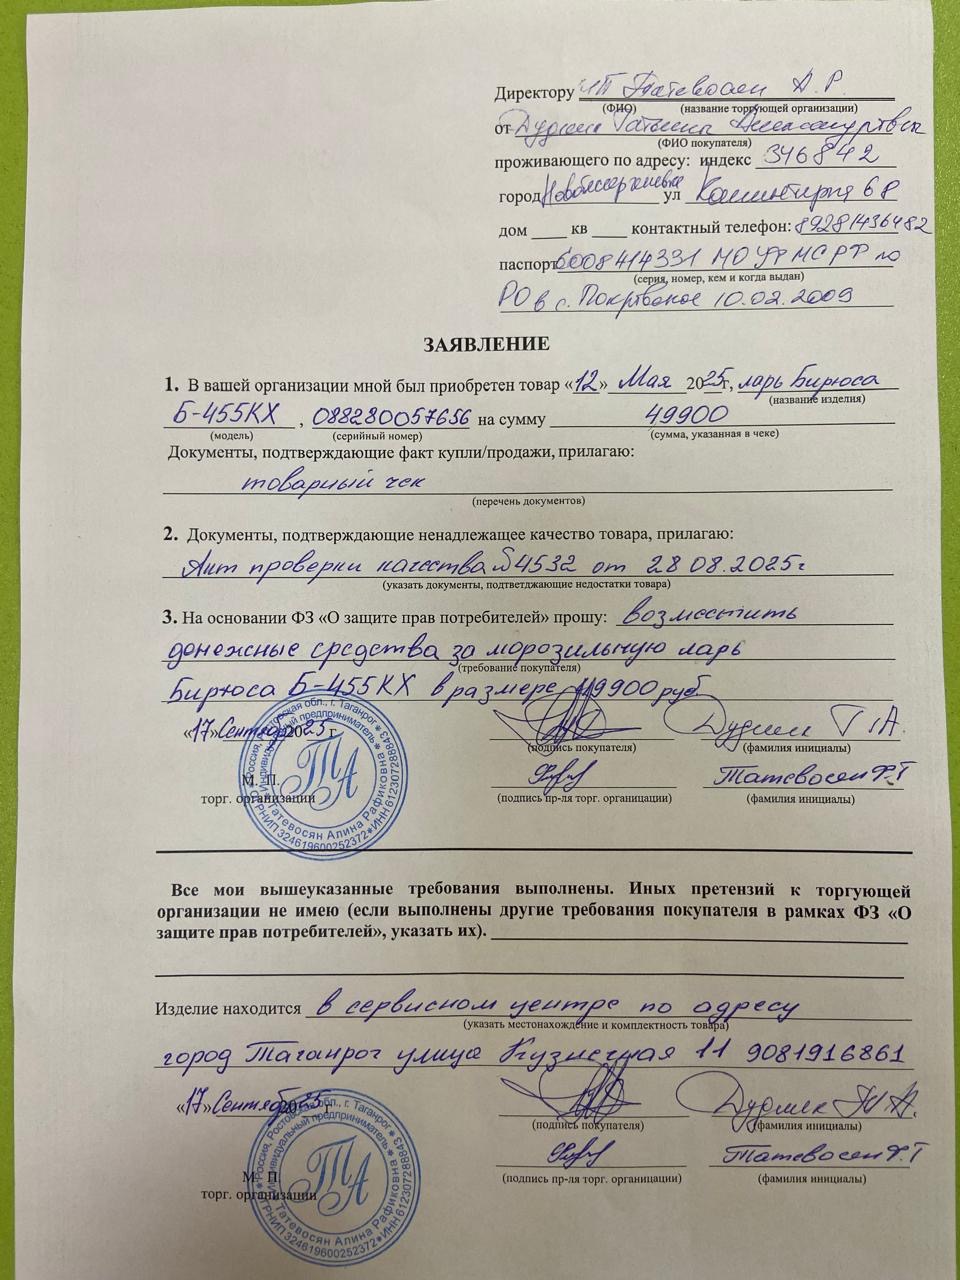 Директору ИП Татевосян А.Р.
(ФИО) (название торгующей организации)
от Татьяны
(ФИО покупателя)
проживающего по адресу: индекс 346842
город ул 68
дом ____ кв ____ контактный телефон: 89281436482
паспорт 6008414331 МО УФМС РФ по
(серия, номер, кем и когда выдан)
РО в с. Покровское 10.02.2009
ЗАЯВЛЕНИЕ
1. В вашей организации мной был приобретен товар «12» Мая 2025г, ларь Бирюса
(название изделия)
Б-455КХ , 088280057656 на сумму 49900
(модель) (серийный номер) (сумма, указанная в чеке)
Документы, подтверждающие факт купли/продажи, прилагаю:
товарный чек
(перечень документов)
2. Документы, подтверждающие ненадлежащее качество товара, прилагаю:
Акт проверки качества 4532 от 28 08.2025г
(указать документы, подтветджающие недостатки товара)
3. На основании ФЗ «О защите прав потребителей» прошу: возместить
денежные средства за морозильную ларь
(требование покупателя)
Бирюса Б-455КХ в размере 49900 руб
«17» Сентября 2025 г
(подпись покупателя) (фамилия инициалы)
М. П. Татевосян Ф.Г
торг. организации (подпись пр-ля торг. органицации) (фамилия инициалы)
Россия, Ростовская обл., г. Таганрог * Индивидуальный предприниматель * Татевосян Алина Рафиковна * ИНН 612307288843 * ОГРНИП 324619600252372
ТА
Все мои вышеуказанные требования выполнены. Иных претензий к торгующей
организации не имею (если выполнены другие требования покупателя в рамках ФЗ «О
защите прав потребителей», указать их).
Изделие находится в сервисном центре по адресу
(указать местонахождение и комплектность товара)
город Таганрог улица Кузнечная 11 9081916861
«17» Сентября 2025 г
(подпись покупателя) (фамилия инициалы)
М. П. Татевосян Ф.Г
торг. организации (подпись пр-ля торг. органицации) (фамилия инициалы)
Россия, Ростовская обл., г. Таганрог * Индивидуальный предприниматель * Татевосян Алина Рафиковна * ИНН 612307288843 * ОГРНИП 324619600252372
ТА